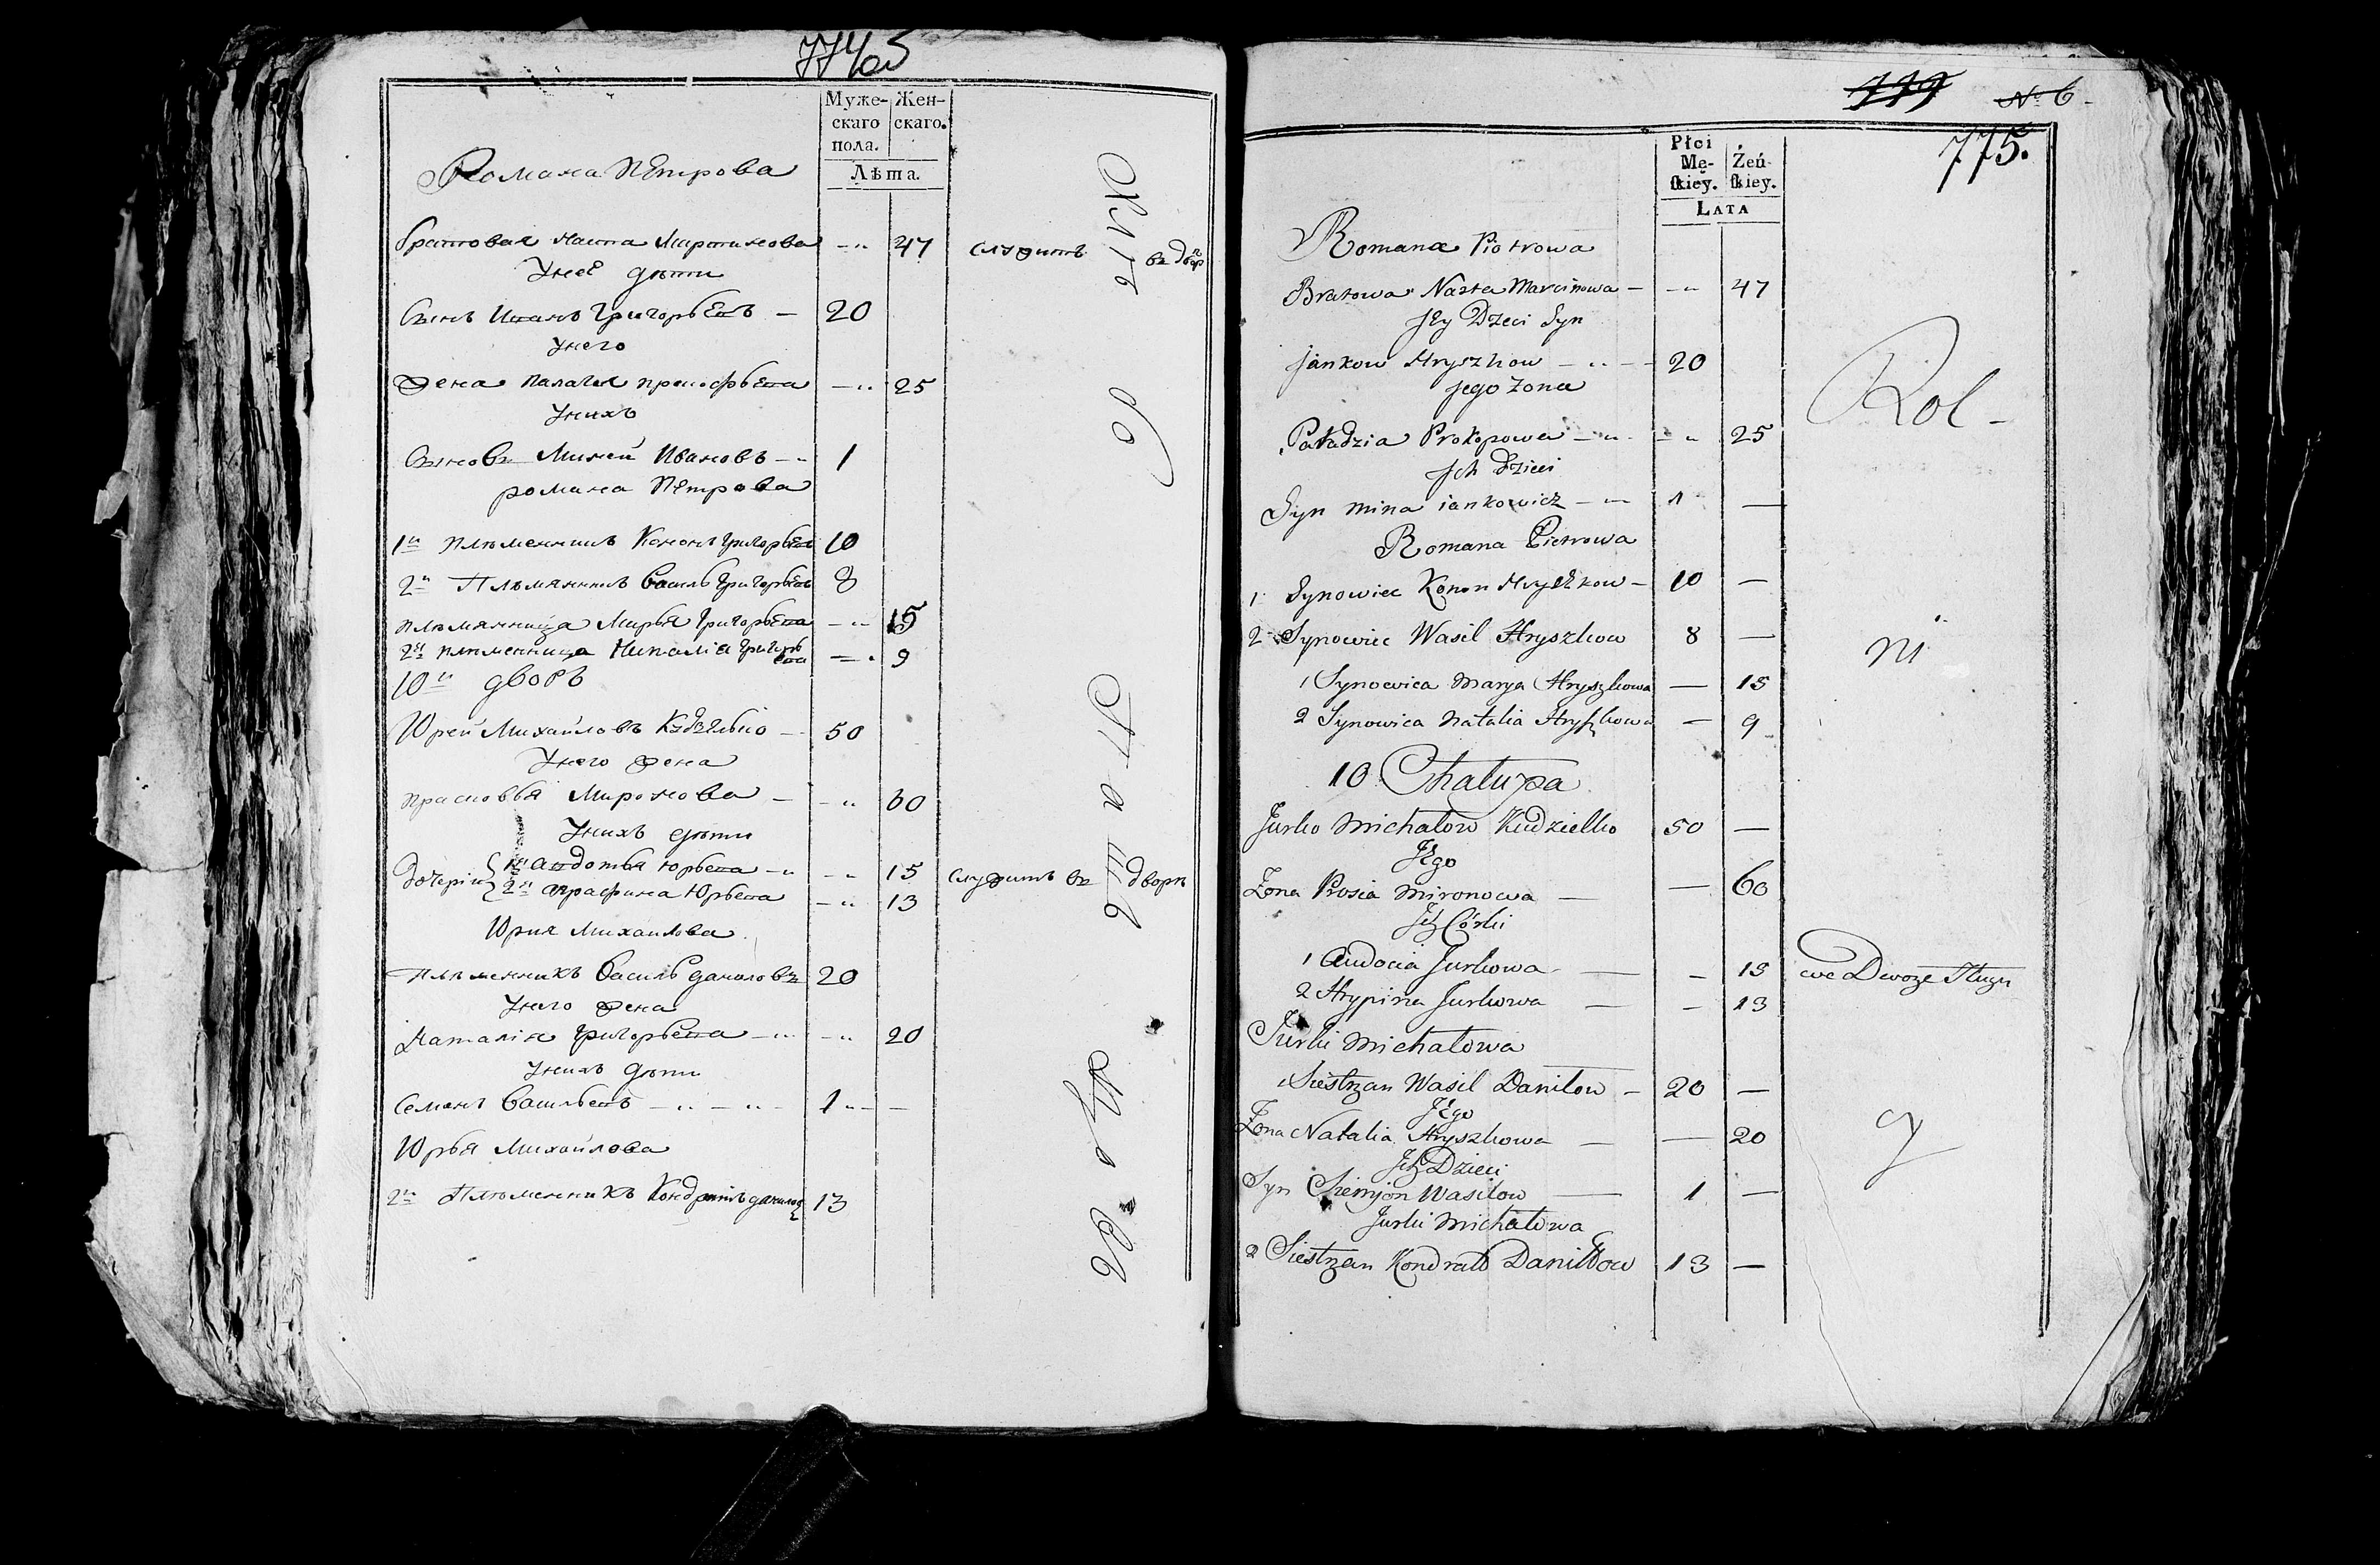 775
Муже-
скаго
пола.
Жен-
скаго.
Лѣта.
Романа Петрова
братовая Наста Мартинова -" 47 служитъ
Унеё дѣти
Сынъ Иванъ Григорьевъ - 20
Унего
жена Палагея Прокофьева -" 25
Унихъ
Сыновъ Миней Ивановъ -" 1
романа Петрова
1й Племенникъ Кононъ Григорьев 10
2й Племянникъ Василь Григорьевъ 8
племянница Марья Григорьева -" 15
2я племенница Наталiя Григорьева - 9
10й дворъ
Юрей Михайловъ Кудзелько - 50
Унего жена
Прасковья Миронова - -" 60
Унихъ дѣти
дочерiи 1я Авдотья Юрьева -" -" 15 служитъ въ дворѣ
2я Аграфина Юрьева -" 13
Юрия Михаилова
племенникъ Василь Даниловъ 20
Унего жена
Наталiя Григорьева -" -" 20
Унихъ дѣти
Семенъ Васильевъ -"-"- 1"- -
Юрья Михайлова
2й Племенникъ Кондратъ данилов 13
№ 6
775.
Płci
Mę-
ſkiey.
Żeń-
ſkiey.
LATA
Romana Piotrowa
Bratowa Nasta Marcinowa - -" 47
Jey Dzeci Syn
jankow Hryszkow -"- 20
Jego żona
Paładzia Prokopowa -" -" 25
Jch Dzieci
Syn mina iankowicz -" 1 —
Romana Pietrowa
1 Synowiec Konon Hryszkow - 10 —
2 Synowiec Wasil Hryszkow 8 —
1 Synowica Marya Hryszkowa — 15
2 Synowica Natalia Hryszkowa — 9
Rol-
ni
cy
10 Chałupa
Jurko Michałow Kudzielko 50 —
Jego
Żona Prosia Mironowa — — 60
Jch Córki
1 Audocia Jurkowa — - 15 we Dworze Służy
2 Hrypina Jurkowa — - 13
Jurki Michałowa
1 Siestrzan Wasil Daniłow - 20 —
Jego
Żona Natalia Hryszkowa — — 20
Jch Dzieci
Syn Siemjon Wasilow — 1 —
Jurki Michałowa
2 Siestrzan Kondrat Daniłow 13 —